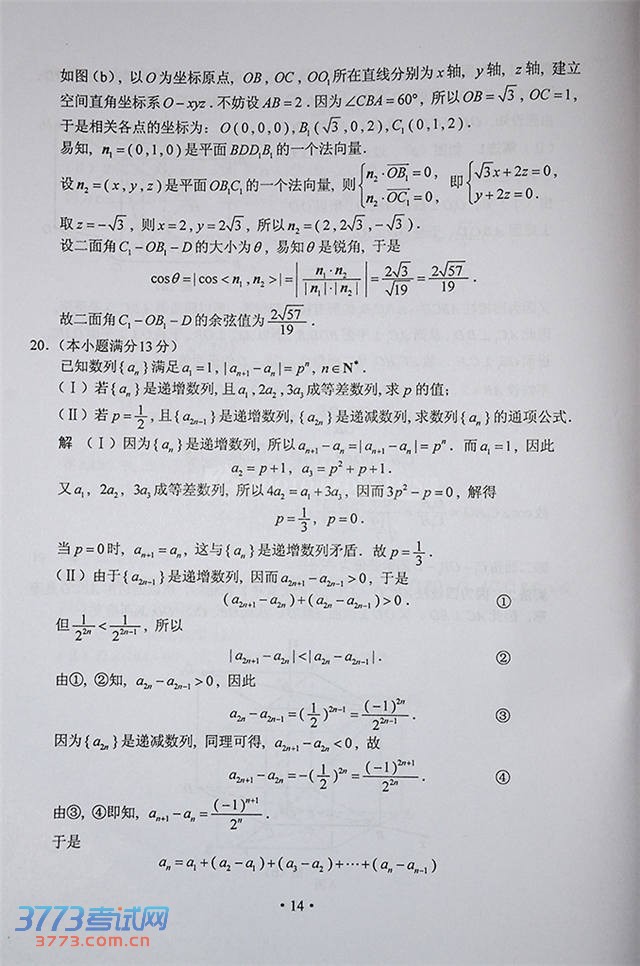 如图(b), 以O为坐标原点, OB, OC, OO₁所在直线分别为x轴, y轴, z轴, 建立
空间直角坐标系O-xyz.不妨设AB=2.因为∠CBA=60°, 所以OB=√3, OC=1,
于是相关各点的坐标为: O(0,0,0), B₁(√3,0,2), C₁(0,1,2).
易知, n₁=(0,1,0)是平面BDD₁B₁的一个法向量.
设n₂=(x,y,z)是平面OB₁C₁的一个法向量, 则{n₂·OB₁=0, n₂·OC₁=0, 即{√3x+2z=0, y+2z=0.
取z=-√3, 则x=2, y=2√3, 所以n₂=(2,2√3,-√3).
设二面角C₁-OB₁-D的大小为θ, 易知θ是锐角, 于是
cosθ=|cos<n₁,n₂>|=|n₁·n₂/(|n₁|·|n₂|)|=2√3/√19=2√57/19.
故二面角C₁-OB₁-D的余弦值为2√57/19.
20. (本小题满分13分)
已知数列{aₙ}满足a₁=1, |aₙ₊₁-aₙ|=pⁿ, n∈N*.
(Ⅰ)若{aₙ}是递增数列, 且a₁, 2a₂, 3a₃成等差数列, 求p的值;
(Ⅱ)若p=1/2, 且{a₂ₙ₋₁}是递增数列, {a₂ₙ}是递减数列, 求数列{aₙ}的通项公式.
解 (Ⅰ)因为{aₙ}是递增数列, 所以aₙ₊₁-aₙ=|aₙ₊₁-aₙ|=pⁿ. 而a₁=1, 因此
a₂=p+1, a₃=p²+p+1.
又a₁, 2a₂, 3a₃成等差数列, 所以4a₂=a₁+3a₃, 因而3p²-p=0, 解得
p=1/3, p=0.
当p=0时, aₙ₊₁=aₙ, 这与{aₙ}是递增数列矛盾. 故p=1/3.
(Ⅱ)由于{a₂ₙ₋₁}是递增数列, 因而a₂ₙ₊₁-a₂ₙ₋₁>0, 于是
(a₂ₙ₊₁-a₂ₙ)+(a₂ₙ-a₂ₙ₋₁)>0. ①
但1/2²ⁿ<1/2²ⁿ⁻¹, 所以
|a₂ₙ₊₁-a₂ₙ|<|a₂ₙ-a₂ₙ₋₁|. ②
由①, ②知, a₂ₙ-a₂ₙ₋₁>0, 因此
a₂ₙ-a₂ₙ₋₁=(1/2)²ⁿ⁻¹=(-1)²ⁿ/2²ⁿ⁻¹. ③
因为{a₂ₙ}是递减数列, 同理可得, a₂ₙ₊₁-a₂ₙ<0, 故
a₂ₙ₊₁-a₂ₙ=-(1/2)²ⁿ=(-1)²ⁿ⁺¹/2²ⁿ. ④
由③, ④即知, aₙ₊₁-aₙ=(-1)ⁿ⁺¹/2ⁿ.
于是
aₙ=a₁+(a₂-a₁)+(a₃-a₂)+⋯+(aₙ-aₙ₋₁)
·14·
3773考试网
3773.com.cn